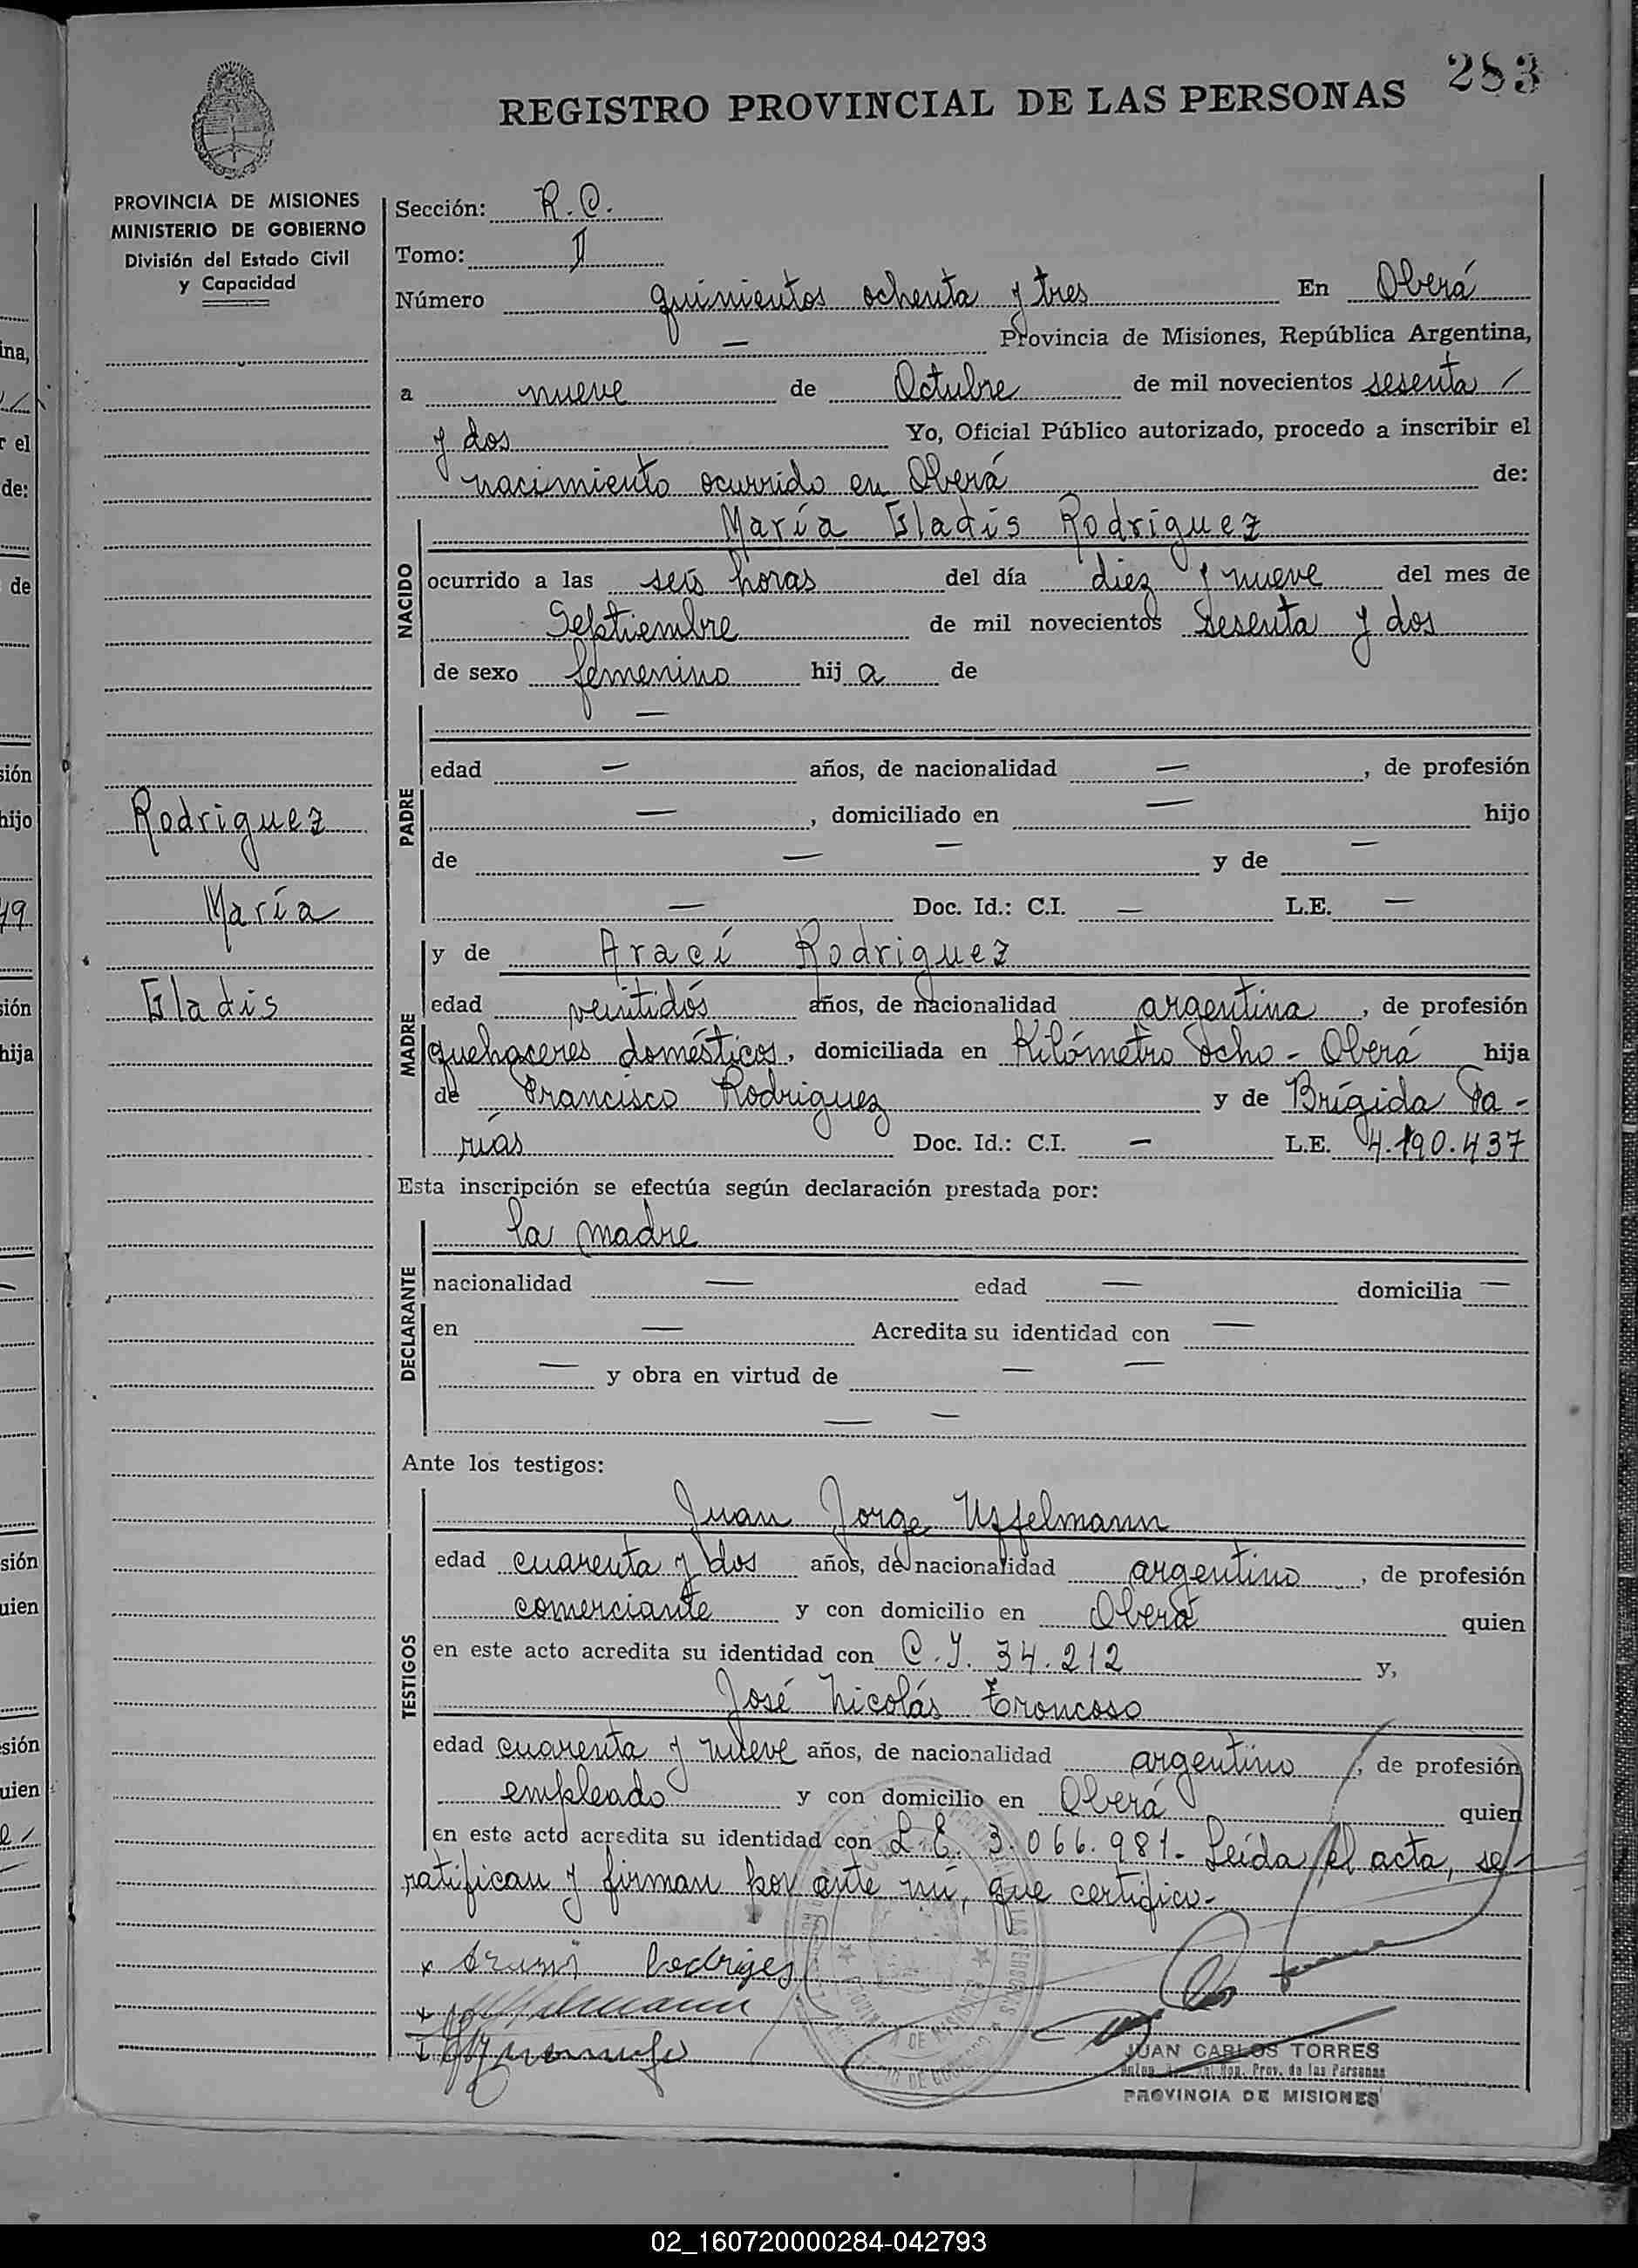 283
REGISTRO PROVINCIAL DE LAS PERSONAS
PROVINCIA DE MISIONES
MINISTERIO DE GOBIERNO
División del Estado Civil
y Capacidad
Rodriguez
María
Gladis
Sección: R.C.
Tomo: II
Número quinientos ochenta y tres En Oberá
— Provincia de Misiones, República Argentina,
a nueve de Octubre de mil novecientos sesenta /
y dos Yo, Oficial Público autorizado, procedo a inscribir el
nacimiento ocurrido en Oberá de:
NACIDO
María Gladis Rodriguez
ocurrido a las seis horas del día diez y nueve del mes de
Septiembre de mil novecientos sesenta y dos
de sexo femenino hij a de
PADRE
—
edad — años, de nacionalidad —, de profesión
—, domiciliado en — hijo
de — — y de —
— Doc. Id.: C.I. — L.E. —
MADRE
y de Arací Rodriguez
edad veintidós años, de nacionalidad argentina, de profesión
quehaceres domésticos, domiciliada en Kilómetro ocho - Oberá hija
de Francisco Rodriguez y de Brígida Fa-
rías Doc. Id.: C.I. — L.E. 4.190.437
Esta inscripción se efectúa según declaración prestada por:
DECLARANTE
la madre
nacionalidad — edad — domicilia —
en — Acredita su identidad con —
— y obra en virtud de — —
— —
Ante los testigos:
TESTIGOS
Juan Jorge Uffelmann
edad cuarenta y dos años, de nacionalidad argentino, de profesión
comerciante y con domicilio en Oberá quien
en este acto acredita su identidad con C.I. 34.212 y,
José Nicolás Troncoso
edad cuarenta y nueve años, de nacionalidad argentino, de profesión
empleado y con domicilio en Oberá quien
en este acto acredita su identidad con L.E. 3.066.981.- Leída el acta, se
ratifican y firman por ante mí, que certifico.-
JUAN CARLOS TORRES
Prov. de las Personas
PROVINCIA DE MISIONES
ina,
r el
de:
de
sión
hijo
49
sión
hija
sión
uien
sión
uien
02_160720000284-042793